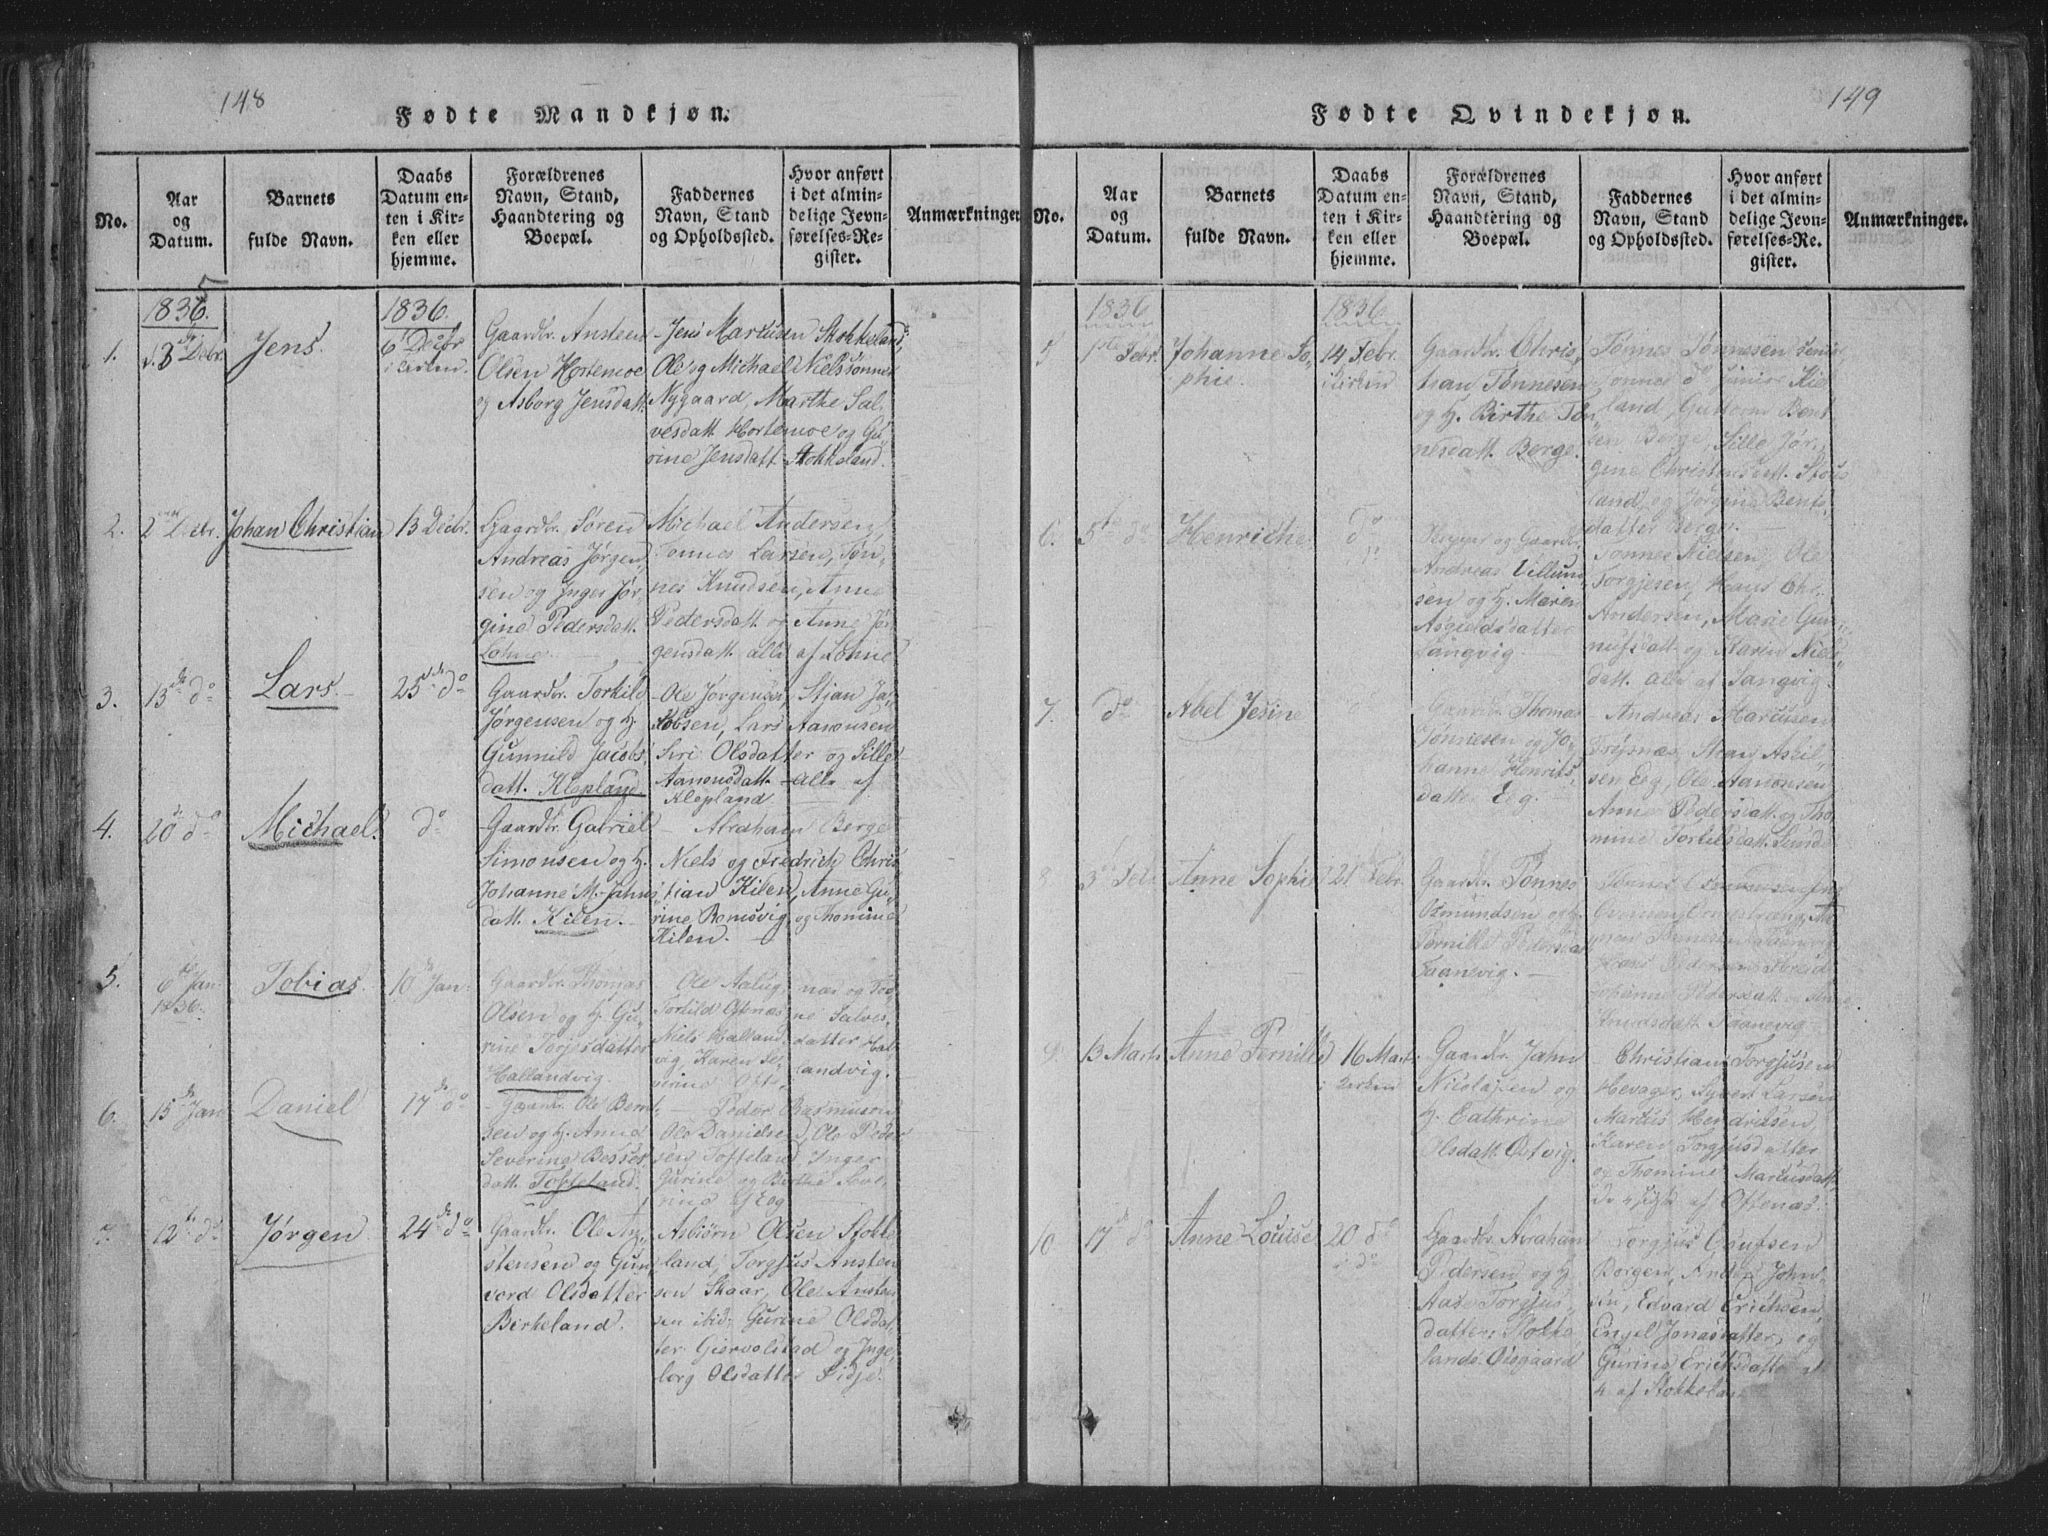 148
Fødte Mandkjøn.
No.
Aar
og
Datum.
Barnets
fulde Navn.
Daabs
Datum en-
ten i Kir-
ken eller
hjemme.
Forældrenes
Navn, Stand,
Haandtering og
Boepæl.
Faddernes
Navn, Stand
og Opholdssted.
Hvor anført
i det almin-
delige Jevn-
førelses-Re-
gister.
Anmærkninger.
1.
1836.
5
Debr.
Jens.
1836.
6 Decbr
i Kirken.
Gaardbr. Ansteen
Olsen Hortemoe
og Asborg Jensdatt.
Jens Marcusen Stokkeland,
Ole og Michael Nielssønner
Nygaard, Marthe Sal-
vesdatt. Hortemoe og Gu-
rine Jensdatt Stokkeland.
2.
2 Debr.
Johan Christian
13 Decbr.
Gaardbr. Søren
Andreas Jørgen-
sen og Inger Jør-
gine Pedersdatt.
Lohne.
Michael Andersen,
Tønnes Larsen, Tøn-
nes Knudsen, Anne
Pedersdatt og Anne Jør-
gensdatt. alle af Lohne
3.
13 do
Lars.
25 do
Gaardbr. Torkild
Jørgensen og H.
Gunnild Jacobs-
datt. Klepland.
Ole Jørgensen, Stian Ja-
kobsen, Lars Aanonsen
Siri Olsdatter og Sille
Aanonsdatt. alle af
Klepland
4.
20 do
Michael.
do
Gaardbr. Gabriel
Simonsen og H.
Johanne M. Jahns
datt. Kilen.
Abraham Berge
Niels og Fredrich Chris
tian Kilen, Anne Gu-
rine Romsvig, og Thomine
Kilen.
5.
6 Jan
1836.
Tobias.
10 Jan.
Gaardbr. Thomas
Olsen og H. Gu-
rine Torjesdatter
Hallandvig.
Ole Aalug
nær og Tor-
Torkild Oftenæs,
ne Salves-
Niels Halland-
datter Hal-
vig, Karen Se-
landvig.
verine Ofte-
6.
15 Jan
Daniel
17 do
Gaardbr. Ole Bernt-
sen og H. Anne
Severine Besses-
datt. Tofteland.
Peder Rasmusen
Ole Danielsen, Ole Peder
sen Tofteland, Inger
Gurine og Birthe Seve-
rine Eeg
7.
12 do
Jørgen
24 do
Gaardbr. Ole Aa-
stensen og Gun-
vord Olsdatter
Birkeland.
Asbiørn Olsen Stokke
land, Torgjus Ansten
sen Skaar, Ole Ansten
sen ibid: Gurine Olsdat-
ter Giervolstad og Inge-
borg Olsdatter Sidje.
149
Fødte Qvindekjøn.
No.
Aar
og
Datum.
Barnets
fulde Navn.
Daabs
Datum en-
ten i Kir-
ken eller
hjemme.
Forældrenes
Navn, Stand,
Haandtering og
Boepæl.
Faddernes
Navn, Stand
og Opholdssted.
Hvor anført
i det almin-
delige Jevn-
førelses-Re-
gister.
Anmærkninger.
5
1836
1ste Febr.
Johanne So-
phie.
1836
14 Febr.
i Kirken
Gaardbr. Chris-
tian Tønnesen
og H. Birthe Tøn-
nesdatt. Berge.
Tønnes Tønnesen senior
Tønnes do junior Kie-
land, Guttorm Bent
sen Berge, Sille Jør-
gine Christensdatt. Stous
land, og Jørgine Bents-
datter Berge.
6.
5 do
Henriche
do
Skipper og Gaardbr.
Andreas Villum-
sen og H. Maren
Asgieldsdatter
Langvig.
Tønnes Nielsen, Ole
Torgjesen, Hans Chr.
Andersen, Marie Gun-
nufsdatt. og Karin Niels-
datt. alle af Langvig.
7.
do
Abel Jesine
Gaardbr. Thomas
Tønnesen og Jo-
hanne Henriks-
datter Eeg.
Andreas Marcusen
Frøysnæs, Stian Askil-
sen Eeg, Ole Aanonsen
Anne Pedersdatt. og Tho
mine Torkilsdatt. Lunde
8
3 Febr
Anne Sophie
21 Febr.
Gaardbr. Tønnes
Osmundsen og H.
Pernille Pedersdat
Faanevig.
Johanne Pedersdatt. og Anne
Knudsdatt. Faanevig
9
13 Marts
Anne Pernille
16 Mart
i Kirken
Gaardbr. Jahn
Nicolaisen og
H. Cathrine
Olsdatt. Østvig.
Christian Torgjusen
Hevager, Syvert Larsen
Marcus Hendriksen
Karen Torgjusdatter
og Thomine Marcusdatt.
de 4 sidste af Oftenæs.
10
17 do
Anne Louise
20 do
i do
Gaardbr. Abraham
Pedersen og H.
Aase Torgjus-
datter Stokke
lands Ødegaard
Torgjus Gaufsen
Borgen, Anders John-
sen, Edvard Erichsen
Engel Jonasdatter, og
Gurine Erichsdatter alle
4 af Stokkeland